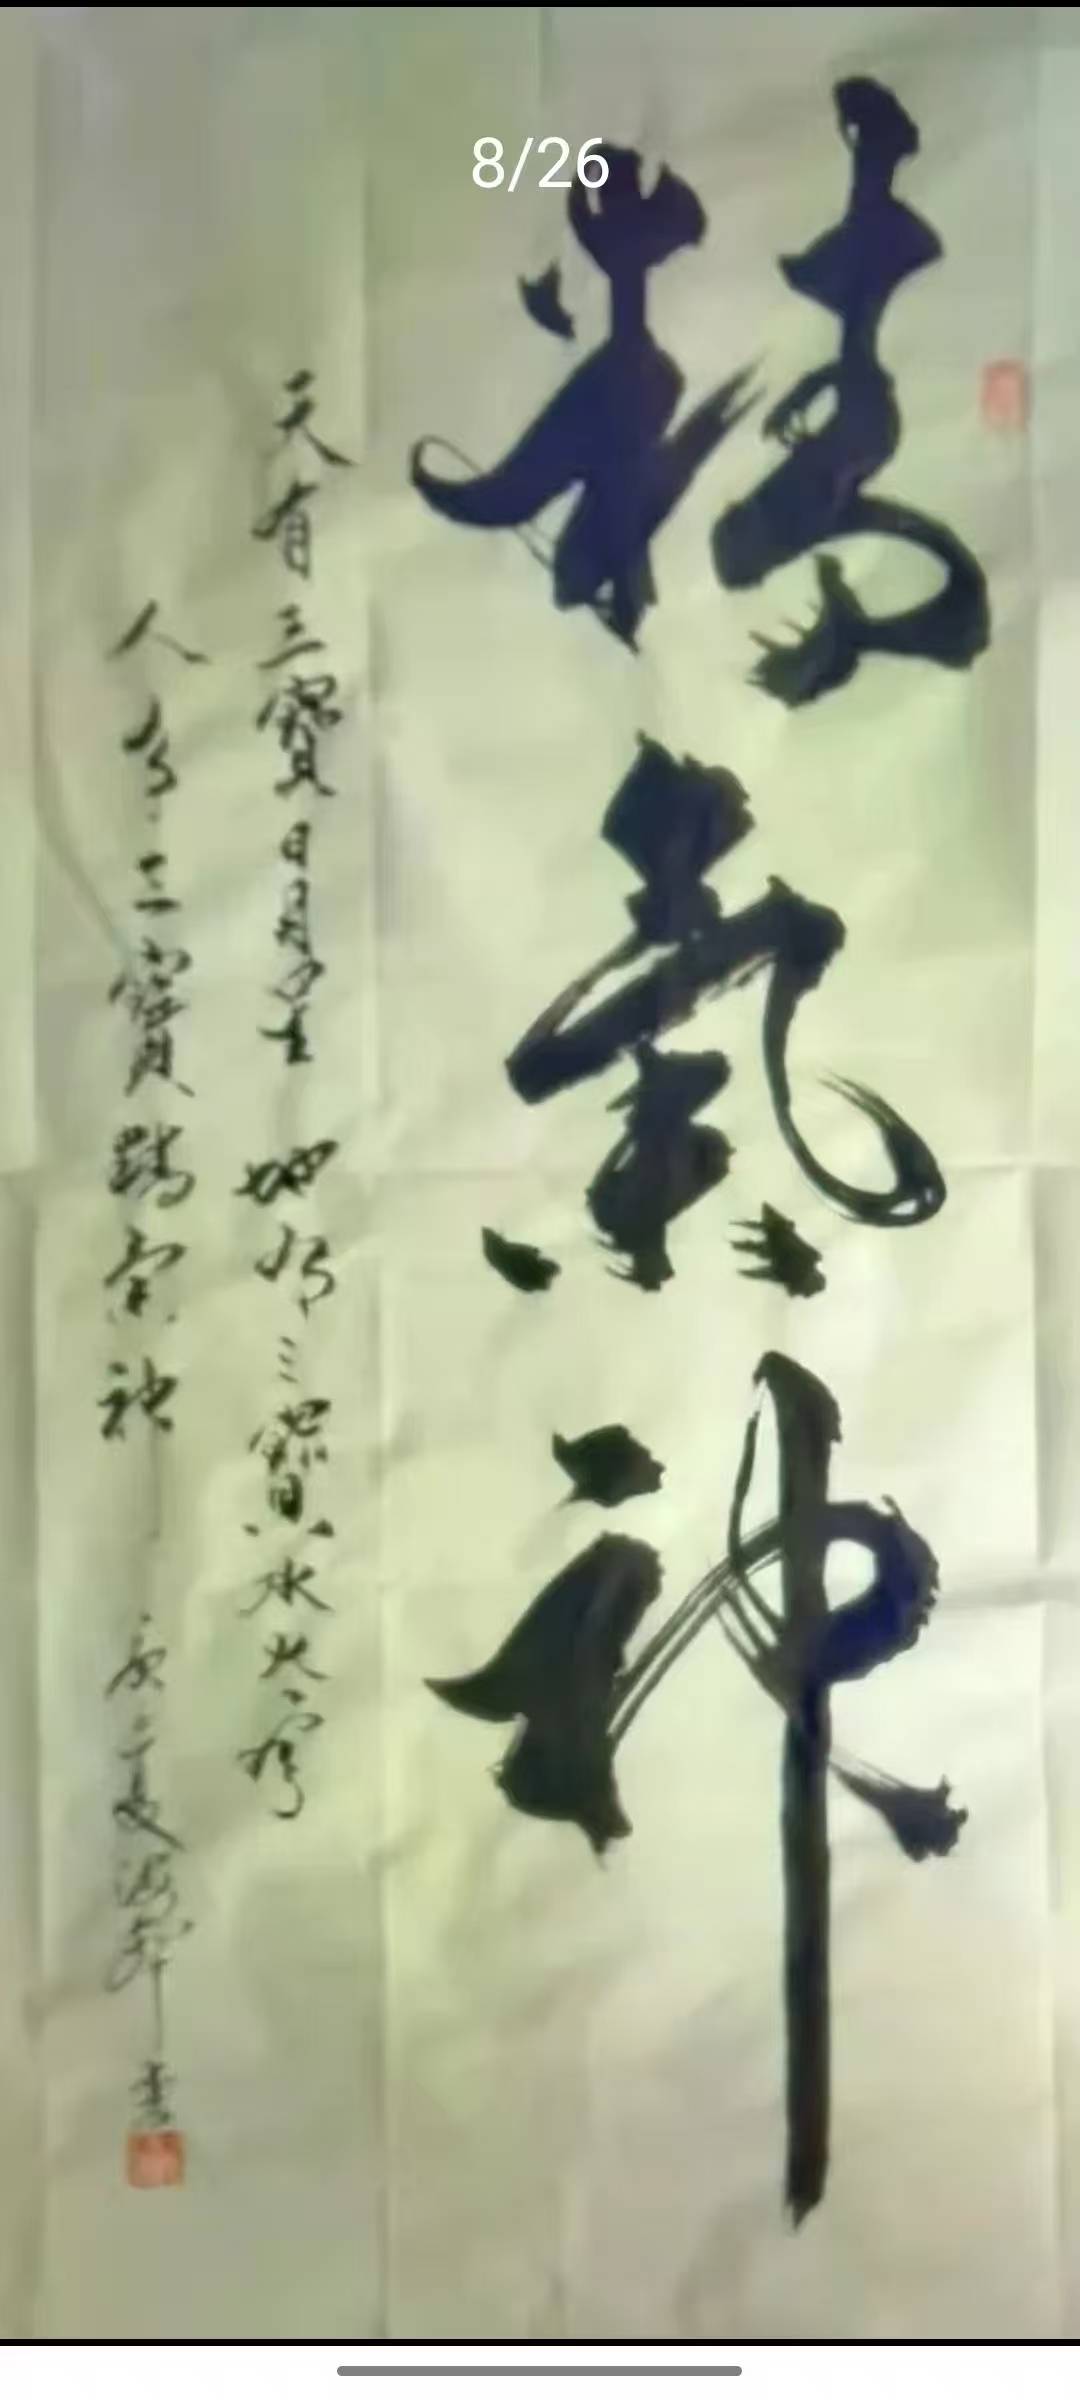 8/26
精氣神
天有三寶日月星 地有三寶水火風
人有三寶精氣神 庚子夏 書